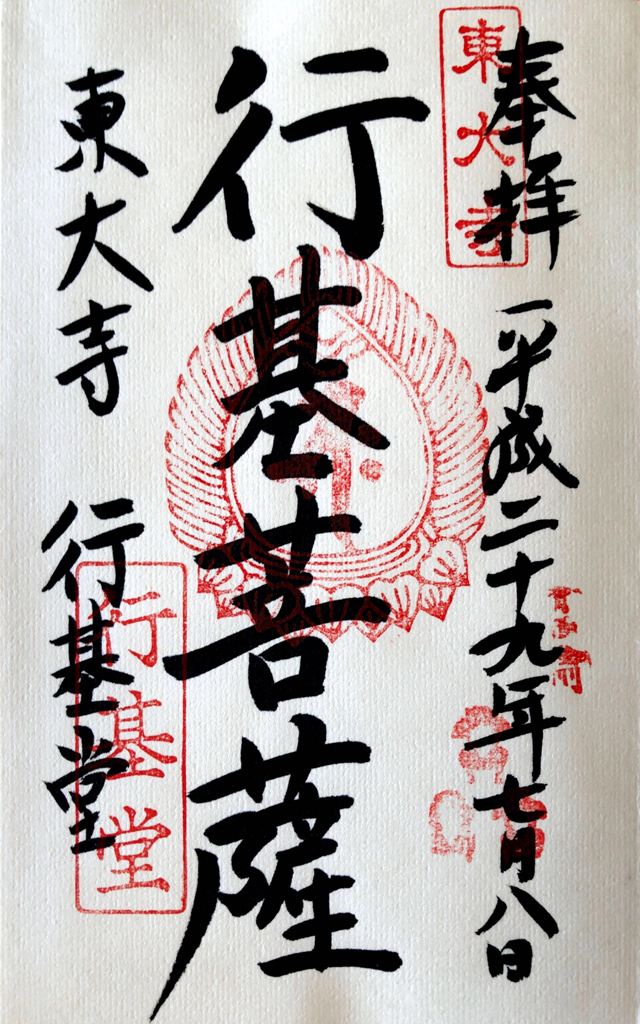 奉拝
平成二十九年七月八日
東大寺
行基菩薩
東大寺
行基堂
行基堂